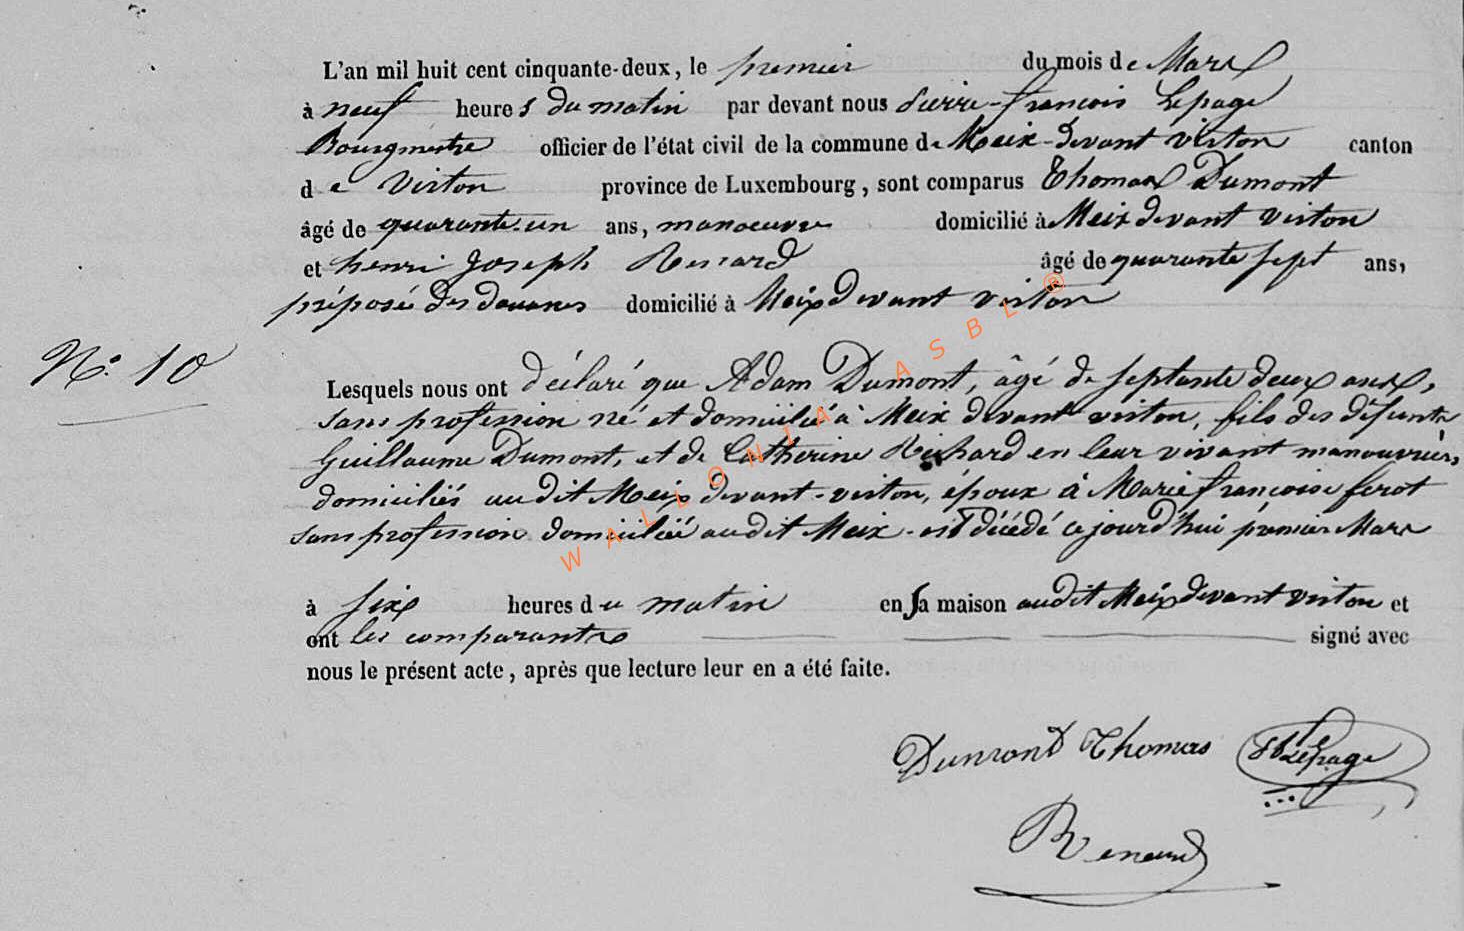 L'an mil huit cent cinquante-deux, le premier du mois de Mars
à neuf heures du matin par devant nous Pierre-françois Lepage
Bourgmestre officier de l'état civil de la commune de Meix-devant virton canton
de Virton province de Luxembourg, sont comparus Thomas Dumont
âgé de quarante-un ans, manoeuvre domicilié à Meix devant virton
et henri Joseph Renard âgé de quarante sept ans,
préposé des douanes domicilié à Meix devant virton
N° 10
Lesquels nous ont déclaré que Adam Dumont, âgé de septante deux ans,
sans profession né et domicilié à Meix devant virton, fils des défunts
Guillaume Dumont, et de Catherine Richard en leur vivant manouvriers,
domiciliés au dit Meix devant-virton, époux à Marie françoise ferot
sans profession domiciliée audit Meix - est décédé ce jourd'hui premier Mars
à six heures du matin en sa maison audit Meix devant virton et
ont les comparants signé avec
nous le présent acte, après que lecture leur en a été faite.
Dumont Thomas Lepage
Renard
WALLONIA ASBL ®